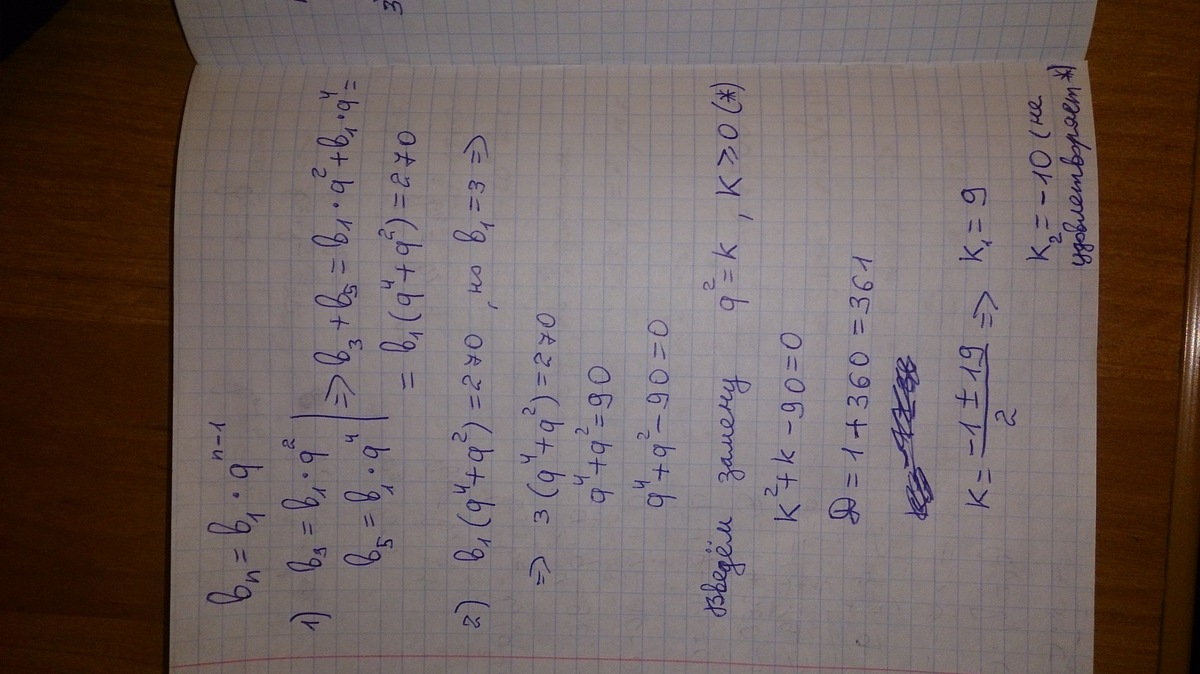 bₙ = b₁ · qⁿ⁻¹
1) b₃ = b₁ · q² | => b₃ + b₅ = b₁ · q² + b₁ · q⁴ =
b₅ = b₁ · q⁴ | = b₁(q⁴ + q²) = 270
2) b₁(q⁴ + q²) = 270, но b₁ = 3 =>
=> 3(q⁴ + q²) = 270
q⁴ + q² = 90
q⁴ + q² - 90 = 0
Введём замену q² = k, k ≥ 0 (*)
k² + k - 90 = 0
D = 1 + 360 = 361
k = (-1 ± 19)/2 => k₁ = 9
k₂ = -10 (не
удовлетворяет *)